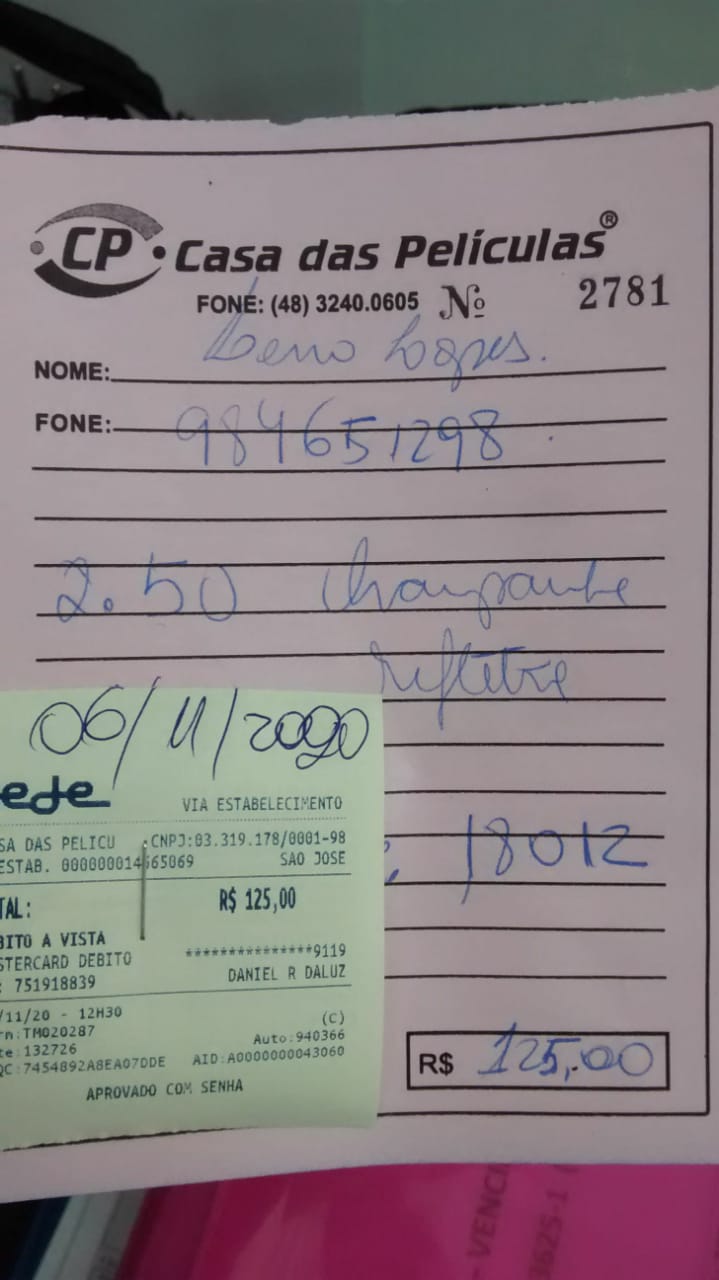 CP • Casa das Películas®
FONE: (48) 3240.0605 Nº 2781
NOME: Lopes.
FONE: 984651298
2.50 Champanhe
refletre
18012
R$ 125,00
06/11/2020
ede
VIA ESTABELECIMENTO
SA DAS PELICU CNPJ:03.319.178/0001-98
ESTAB. 000000014665069 SAO JOSE
TAL: R$ 125,00
BITO A VISTA
STERCARD DEBITO ***************9119
: 751918839 DANIEL R DALUZ
/11/20 - 12H30 (C)
rn:TM020287 Auto:940366
te:132726 AID:A0000000043060
QC:7454892A8EA07DDE
APROVADO COM SENHA
- VENCI
3625-1 (